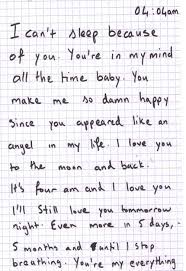 04:04am
I can't sleep because
of you. You're in my mind
all the time baby. You
make me so damn happy
since you appeared like an
angel in my life. I love you
to the moon and back.
It's four am and I love you
I'll still love you tommorrow
night. Even more in 5 days,
5 months and until I stop
breathing. You're my everything